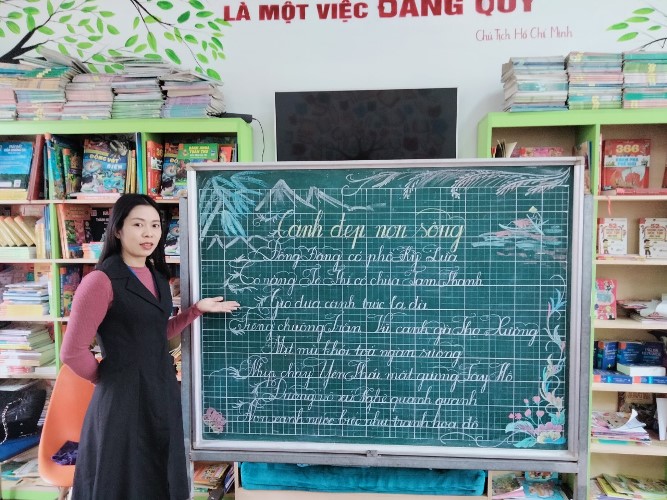 LÀ MỘT VIỆC ĐÁNG QUÝ
Chủ Tịch Hồ Chí Minh
366
Cảnh đẹp non sông
Đồng Đăng có phố Kỳ Lừa
Có nàng Tô Thị có chùa Tam Thanh
Gió đưa cành trúc la đà
Tiếng chuông Trấn Vũ canh gà Thọ Xương
Mịt mù khói toả ngàn sương
Nhịp chày Yên Thái mặt gương Tây Hồ
Đường vô xứ Nghệ quanh quanh
Non xanh nước biếc như tranh hoạ đồ